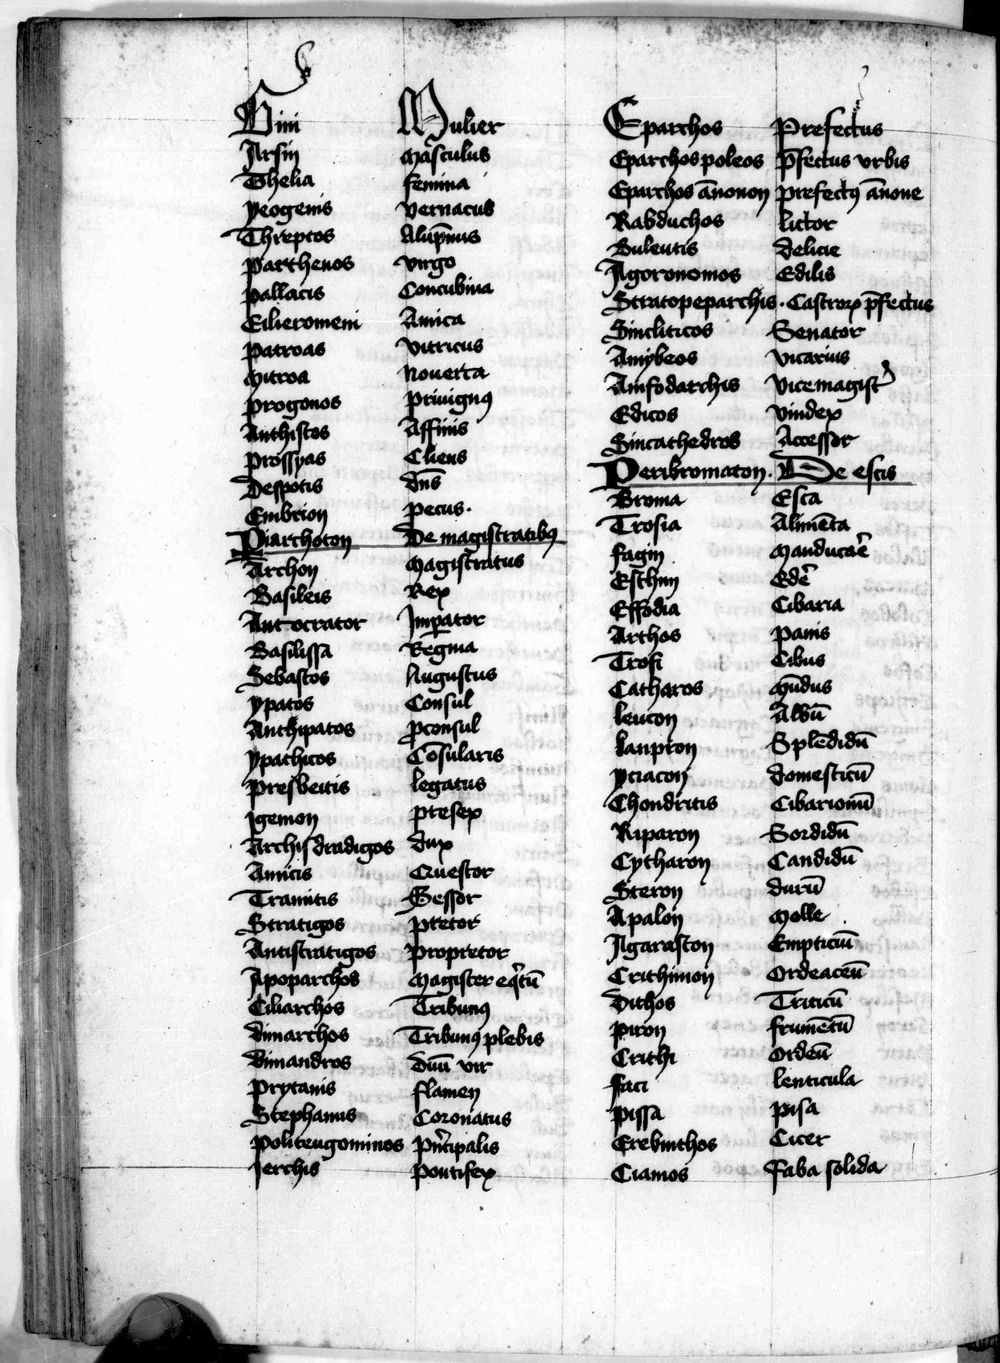 Gini Mulier
Arsin Masculus
Thelia Femina
Yeogenis Vernacus
Threptos Alūpnus
Parthenos Virgo
Pallacis Concubina
Eilieromeni Amica
Patroas Vitricus
Mitroa Nouerca
Progonos Priuignꝯ
Anthistos Affinis
Prossyas Cliens
Despotis Dn̄s
Embrion Pecus·
Piarchoton De magistratibꝯ
Archon Magistratus
Basileis Rex
Autocrator Imꝑator
Basilissa Regina
Sebastos Augustus
ypatos Consul
Anthipatos ꝓconsul
ypaticos Cōsularis
Presbeitis legatus
Igemon Preses
Archistradigos dux
Amicis Questor
Tramitis Gessor
Stratigos Pretor
Antistratigos Propretor
Apoparchos Magister eq̄tū
Ciliarchos Tribunꝯ
dimarchos Tribunꝯ plebis
Dimandros duū vir
Prytanis flamen
Stephanus Coronatus
Politeugominos Pn̄cipalis
Ierchis Pontifex
Eparchos Prefectus
Eparchos poleos P̄fectus vrbis
Eparchos ānonon prefectꝯ ānone
Rabduchos lictor
Buleutis Delicie
Agoronomos Edilis
Stratopeparchis· Castroꝝ p̄fectus
Sincliticos Senator
Amybeos vicarius
Amfodarchis vice magistʼ
Edicos vindex
Sincathedros Accessor
Peribromaton· De escis
Broma Esca
Trosia Alimēta
Fagin Manducar̄e
Esthin Eder̄
Effodia Cibaria
Arthos Panis
Trofi Cibus
Catharos Mūdus
leucon Albū
lanpron Splēdidū
yciacon domesticū
Chondritis Cibariomū
Riparon Sordidū
Cytharon Candidū
Steron durū
Apalon Molle
Agaraston Empticiū
Crithimon Ordeaceū
Dithos Triticū
Piron frumētū
Crithi Ordeū
Faci lenticula
Pissa Pisa
Erebinthos Cicer
Ciamos Faba solida